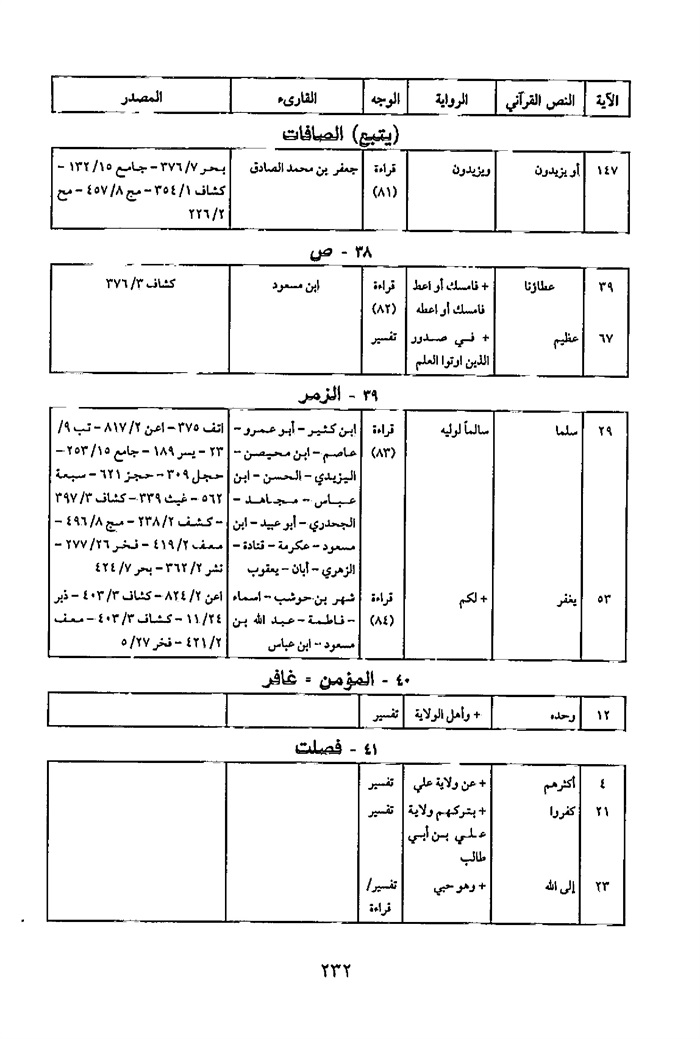 الآية النص القرآني الرواية الوجه القارىء المصدر
(يتبع) الصافات
١٤٧ أو يزيدون ويزيدون قراءة جعفر بن محمد الصادق بحر ٣٧٦/٧ – جامع ١٣٢/١٥ –
(٨١) كشاف ٣٥٤/١ – مج ٤٥٧/٨ – مح
٢٢٦/٢
٣٨ - ص
٣٩ عطاؤنا + فامسك أو اعط قراءة ابن مسعود كشاف ٣٧٦/٣
فامسك أو اعطه (٨٢)
٦٧ عظيم + فـي صـدور تفسير
الذين اوتوا العلم
٣٩ - الزمر
٢٩ سلما سالماً لوليه قراءة ابن كثير – أبو عمرو – اتف ٣٧٥ – اعن ٨١٧/٢ – تب ٩/
(٨٣) عاصم – ابن محيصن – ٢٣ – يسر ١٨٩ – جامع ٢٥٣/١٥ –
اليزيدي – الحسن – ابن حجل ٣٠٩ – حجز ٦٢١ – سبعة
عباس – مجاهد – ٥٦٢ – غيث ٣٣٩ – كشاف ٣٩٧/٣
الجحدري – أبو عبيد – ابن – كشف ٢٣٨/٢ – مج ٤٩٦/٨ –
مسعود – عكرمة – قتادة – معف ٤١٩/٢ – فخر ٢٧٧/٢٦ –
الزهري – أبان – يعقوب نشر ٣٦٢/٢ – بحر ٤٢٤/٧
٥٣ يغفر + لكم قراءة شهر بن حوشب – اسماء اعن ٨٢٤/٢ – كشاف ٤٠٣/٣ – ذبر
(٨٤) – فاطمة – عبد الله بن ١١/٢٤ – كشاف ٤٠٣/٣ – معف
مسعود – ابن عباس ٤٢١/٢ – فخر ٥/٢٧
٤٠ - المؤمن = غافر
١٢ وحده + وأهل الولاية تفسير
٤١ - فصلت
٤ أكثرهم + عن ولاية علي تفسير
٢١ كفروا + بتركهم ولاية تفسير
علي بن أبي
طالب
٢٣ إلى الله + وهو حبي تفسير/
قراءة
٢٣٢